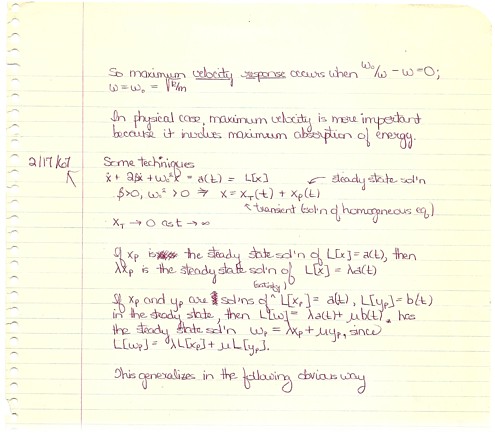 So maximum velocity response occurs when ω₀²/ω - ω = 0;
ω = ω₀ = √k/m
In physical case, maximum velocity is more important
because it involves maximum absorption of energy.
2/17/67 Some techniques
ẍ + 2βẋ + ω₀²x = a(t) = L[x] ← steady state sol'n
β>0, ω₀² > 0 ⇒ x = x_T(t) + x_P(t)
transient (sol'n of homogeneous eq)
x_T → 0 as t → ∞
If x_P is the steady state sol'n of L[x] = a(t), then
λx_P is the steady state sol'n of L[x] = λa(t)
(satisfy)
If x_P and y_P are sol'ns of ^ L[x_P] = a(t), L[y_P] = b(t)
in the steady state, then L[w] = λa(t) + μb(t), has
the steady state sol'n w_P = λx_P + μy_P, since
L[w_P] = λL[x_P] + μL[y_P].
This generalizes in the following obvious way